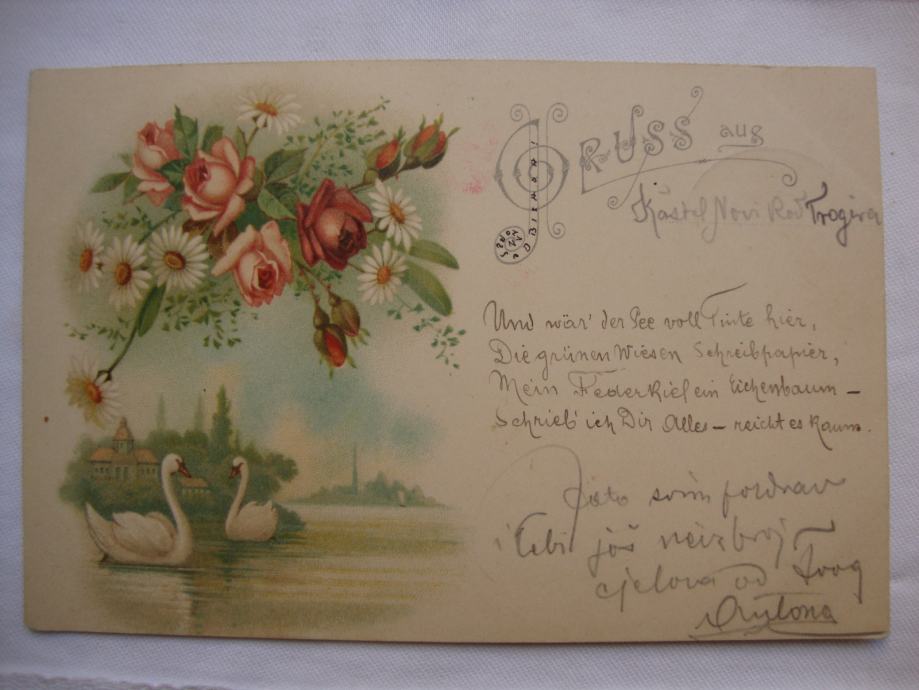 GRUSS aus
Kastel Novi kod Trogira
Und wär' der See voll Tinte hier,
Die grünen Wiesen Schreibpapier,
Mein Federkiel ein Eichenbaum –
Schrieb' ich Dir Alles – reicht es kaum.
svim pozdrav
i Tebi još neizbroj
cjelova od Tvog
Antona